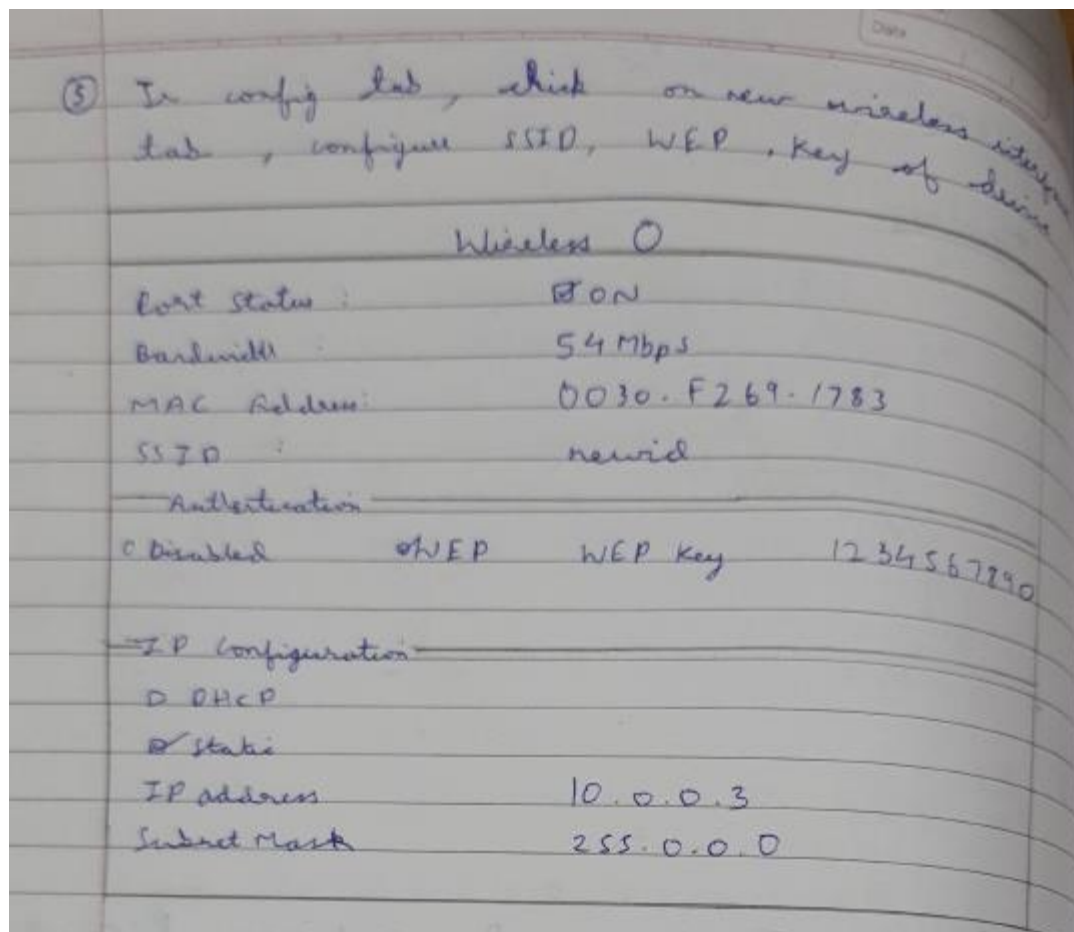 Date
⑤ In config tab, click on new wireless interface
tab, configure SSID, WEP, Key of device
Wireless 0
Port Status : ☑ ON
Bandwidth : 54 Mbps
MAC Address: 0030.F269.1783
SSID : newid
Authentication
○ Disabled WEP WEP Key 1234567890
IP Configuration
□ DHCP
☑ Static
IP address 10.0.0.3
Subnet Mask 255.0.0.0